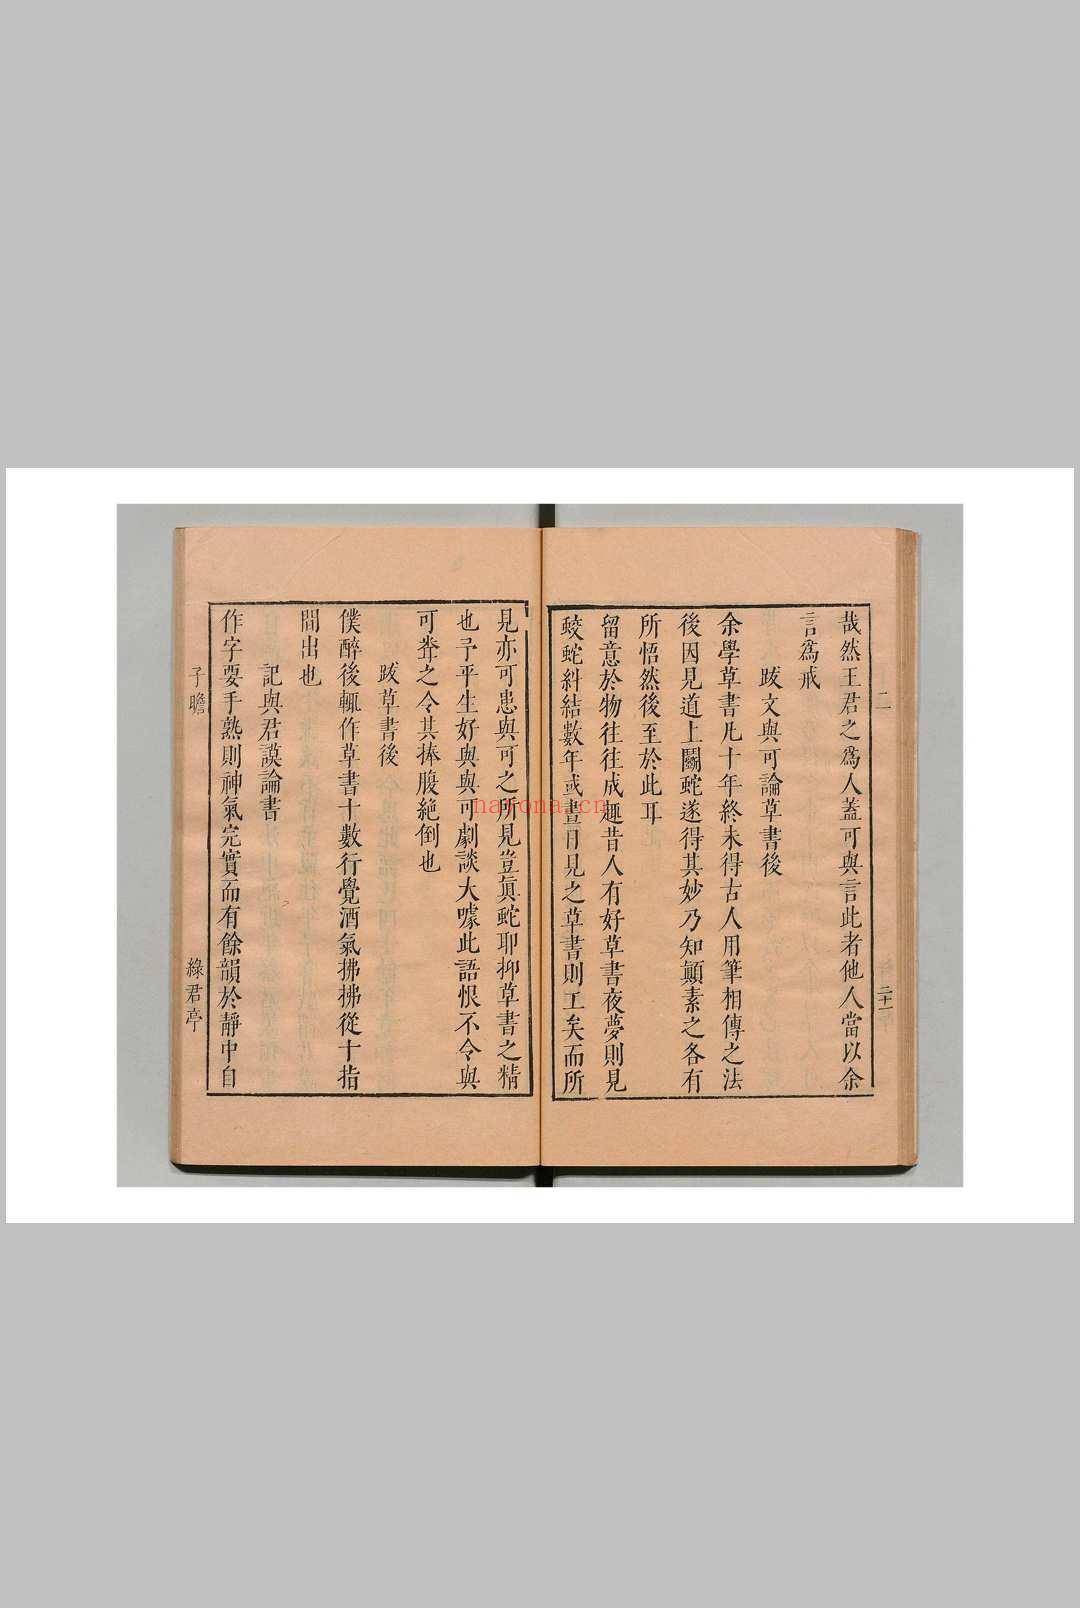 哉然王君之爲人蓋可與言此者他人當以余
言爲戒
跋文與可論草書後
余學草書凡十年終未得古人用筆相傳之法
後因見道上鬭蛇遂得其妙乃知顛素之各有
所悟然後至於此耳
留意於物往往成趣昔人有好草書夜夢則見
蛟蛇糾結數年或晝日見之草書則工矣而所
見亦可患與可之所見豈眞蛇耶抑草書之精
也予平生好與與可劇談大噱此語恨不令與
可聞之令其捧腹絶倒也
跋草書後
僕醉後輒作草書十數行覺酒氣拂拂從十指
間出也
記與君謨論書
作字要手熟則神氣完實而有餘韻於靜中自
二
二十一
子瞻
綠君亭
nayona.cn